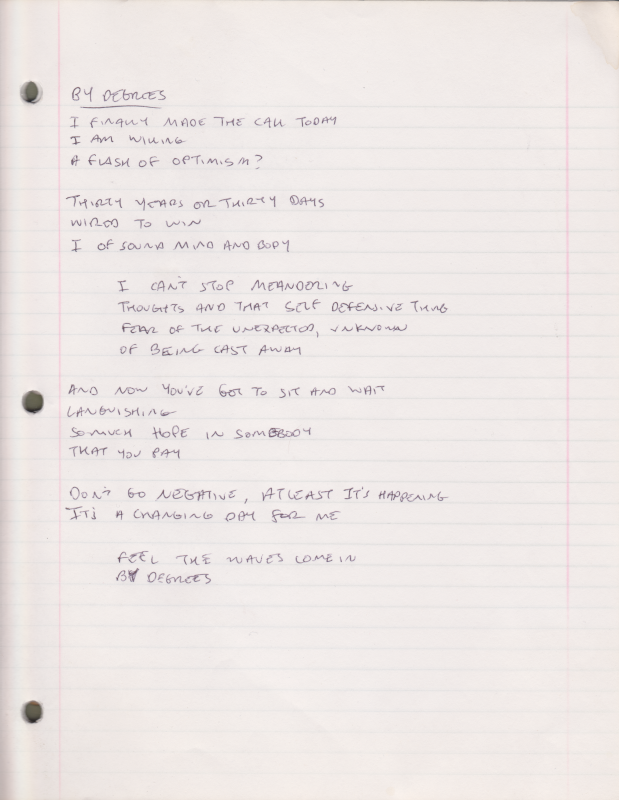 BY DEGREES
I FINALLY MADE THE CALL TODAY
I AM WILLING
A FLASH OF OPTIMISM?
THIRTY YEARS OR THIRTY DAYS
WIRED TO WIN
I OF SOUND MIND AND BODY
I CAN'T STOP MEANDERING
THOUGHTS AND THAT SELF DEFENSIVE THING
FEAR OF THE UNEXPECTED, UNKNOWN
OF BEING CAST AWAY
AND NOW YOU'VE GOT TO SIT AND WAIT
LANGUISHING
SO MUCH HOPE IN SOMEBODY
THAT YOU PAY
DON'T GO NEGATIVE, AT LEAST IT'S HAPPENING
IT'S A CHANGING DAY FOR ME
FEEL THE WAVES COME IN
BY DEGREES